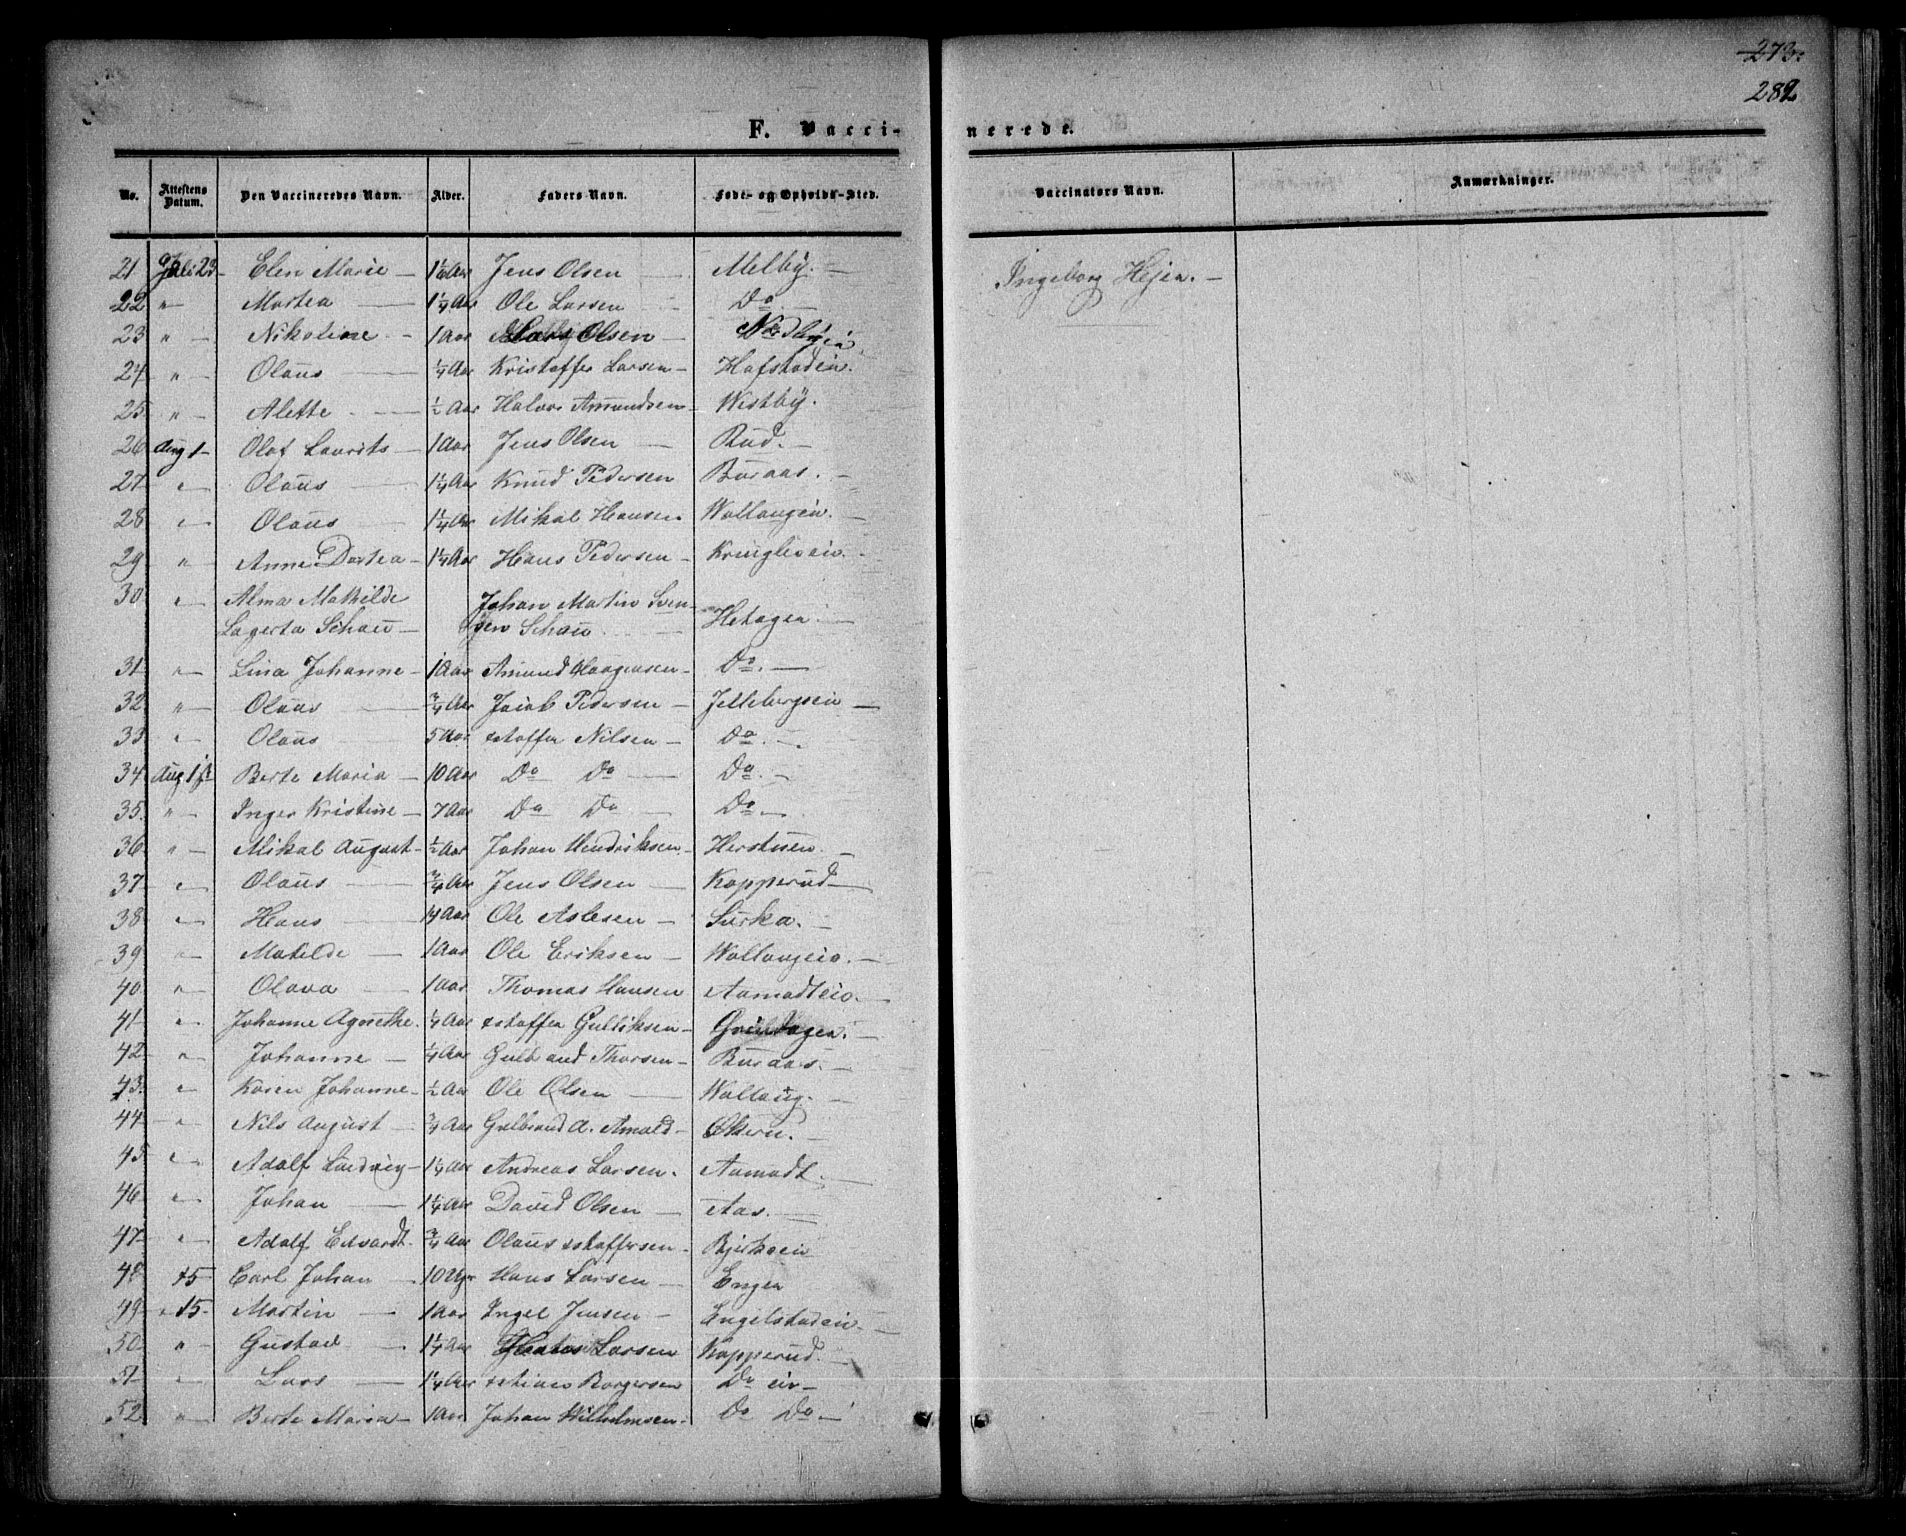 273.
282
F. Vacci-nerede.
No. Attestens Datum. Den Vaccineredes Navn. Alder. Faders Navn. Føde- og Opholds-Sted. Vaccinators Navn. Anmærkninger.
21 Juli 23 Elen Marie 1 1/6 Aar Jens Olsen Melby. Ingeborg Hejen.
22 " Martea 1 1/4 Aar Ole Larsen Do
23 " Nikoline 1 Aar Olsen
24 " Olaus 1/4 Aar Kristoffer Larsen Hofstadein.
25 " Alette 1/2 Aar Halvor Amundsen Westby.
26 Aug 1 Olaf Laurits 1 Aar Jens Olsen Rud.
27 " Olaus 1 1/4 Aar Knud Pedersen Buraas.
28 " Olaus 1 1/4 Aar Mikal Hansen Woltangein.
29 " Anne Dortea 1 1/4 Aar Hans Pedersen Kringleein.
30 " Alma Mathilde Johan Martin Sven- Hetagen
Lagerta Schau sen Schau
31 " Lina Johanne 1 Aar Amund Haagensen Do.
32 " Olaus 3/4 Aar Jacob Pedersen Jellebergsein
33 " Olaus 5 Aar Xstoffer Nilsen Do.
34 Aug 1st Berte Maria 10 Aar Do Do Do.
35. " Inger Kristine 7 Aar Do Do Do.
36 " Mikal August 1/2 Aar Johan Hendriksen. Herstuen.
37 " Olaus 3/4 Aar Jens Olsen Kopperud
38 " Hans Aar Ole Aslesen Surka.
39 " Matilde 1 Aar Ole Eriksen Woltangein.
40 " Olava 1 Aar Thomas Hansen Aamodtein.
41 " Johanne Agnethe. 1/4 Aar Xstoffer Gulliksen
42 " Johanne 1/4 Aar Gulbrand Thorsen Buraas.
43. " Karen Johanne 1/2 Aar Ole Olsen Woltang.
44 " Nils August 3/4 Aar Gulbrand A. Amold Økern.
45 " Adolf Ludvig 1 1/4 Aar Andreas Larsen. Aamodt.
46 " Johan 1 1/4 Aar David Olsen Aas.
47 " Adolf Edvardt. 3/4 Aar Olaus Xstoffersen.
48 15 Carl Johan 10 Uger Hans Larsen Enger
49 " 15 Martin 1 Aar Ingel Jensen Engelstadein
50 " Gustav 1 1/4 Aar Larsen Kopperud.
51 " Lars 1 1/4 Aar Xstian Borgersen Do ein
52 " Berte Maria 1 Aar Johan Wilhelmsen. Do Do